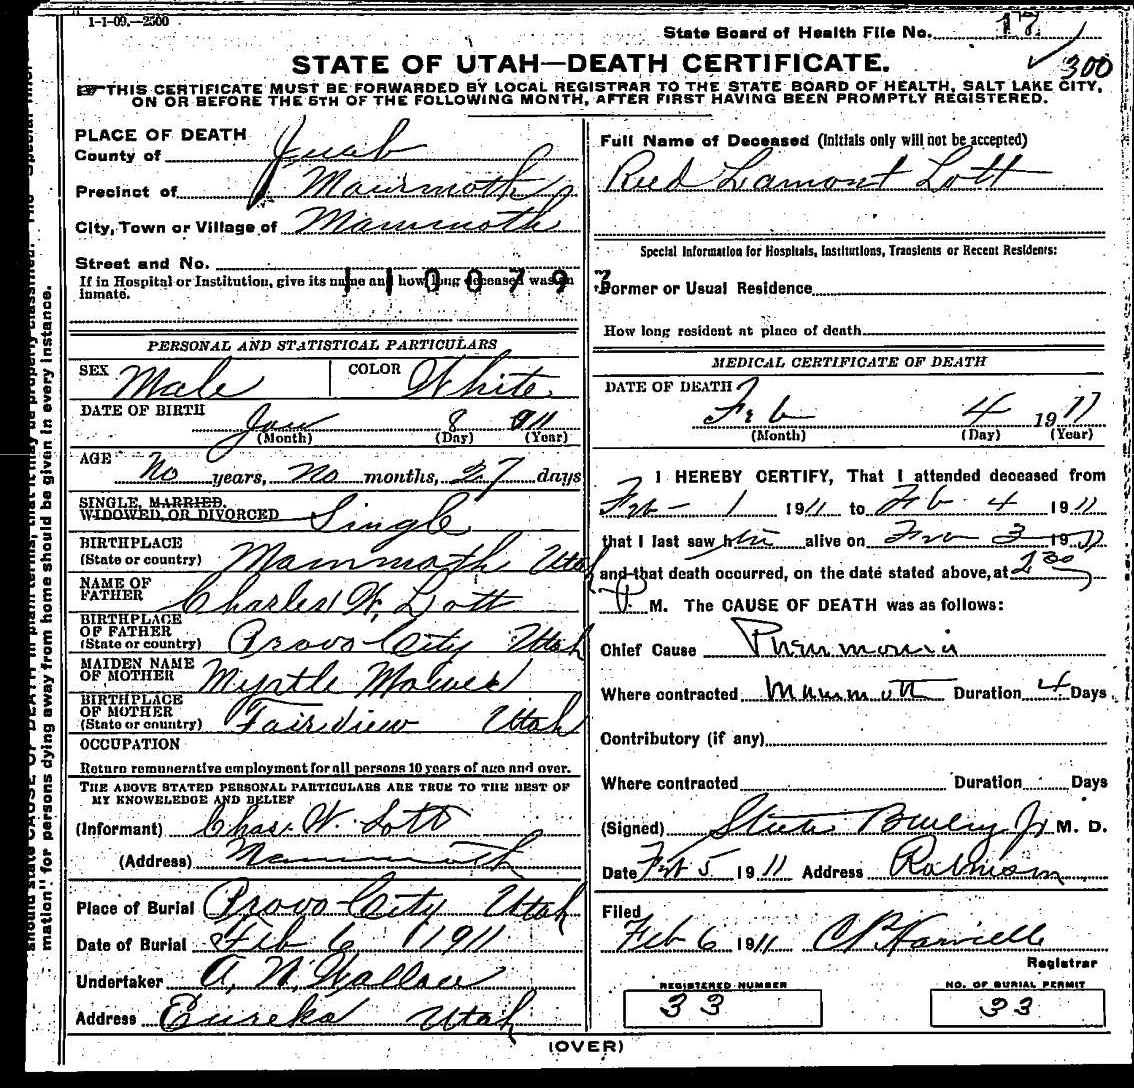 1-1-09.—2500
State Board of Health File No. 17
300
STATE OF UTAH—DEATH CERTIFICATE.
THIS CERTIFICATE MUST BE FORWARDED BY LOCAL REGISTRAR TO THE STATE BOARD OF HEALTH, SALT LAKE CITY,
ON OR BEFORE THE 5TH OF THE FOLLOWING MONTH, AFTER FIRST HAVING BEEN PROMPTLY REGISTERED.
PLACE OF DEATH
County of Juab
Precinct of Mammoth
City, Town or Village of Mammoth
Street and No.
If in Hospital or Institution, give its name and how long deceased was an
inmate.
1 1 0 0 7 9 3
PERSONAL AND STATISTICAL PARTICULARS
SEX Male COLOR White
DATE OF BIRTH
Jan 8 911
(Month) (Day) (Year)
AGE
No years, No months, 27 days
SINGLE, MARRIED,
WIDOWED, OR DIVORCED Single
BIRTHPLACE
(State or country) Mammoth Utah
NAME OF
FATHER Charles W. Lott
BIRTHPLACE
OF FATHER
(State or country) Provo City Utah
MAIDEN NAME
OF MOTHER Myrtle
BIRTHPLACE
OF MOTHER
(State or country) Fairview Utah
OCCUPATION
Return remunerative employment for all persons 10 years of age and over.
THE ABOVE STATED PERSONAL PARTICULARS ARE TRUE TO THE BEST OF
MY KNOWLEDGE AND BELIEF
(Informant) Chas. W. Lott
(Address) Mammoth
Place of Burial Provo City Utah
Date of Burial Feb 6 1911
Undertaker A. N. Wallace
Address Eureka Utah
Full Name of Deceased (Initials only will not be accepted)
Reed Lamont Lott
Special Information for Hospitals, Institutions, Transients or Recent Residents:
Former or Usual Residence
How long resident at place of death
MEDICAL CERTIFICATE OF DEATH
DATE OF DEATH
Feb 4 1911
(Month) (Day) (Year)
I HEREBY CERTIFY, That I attended deceased from
Feb - 1 1911 to Feb 4 1911
that I last saw him alive on Feb 3 1911
and that death occurred, on the date stated above, at 2 30
P. M. The CAUSE OF DEATH was as follows:
Chief Cause Pneumonia
Where contracted Mammoth Duration 4 Days
Contributory (if any)
Where contracted Duration Days
(Signed) Steele Bailey Jr M. D.
Date Feb 5 1911 Address Robinson
Filed
Feb 6 1911
Registrar
REGISTERED NUMBER
33
NO. OF BURIAL PERMIT
33
(OVER)
should state CAUSE OF DEATH in plain terms, that it may be properly classified. The "Special Infor-
mation" for persons dying away from home should be given in every instance.